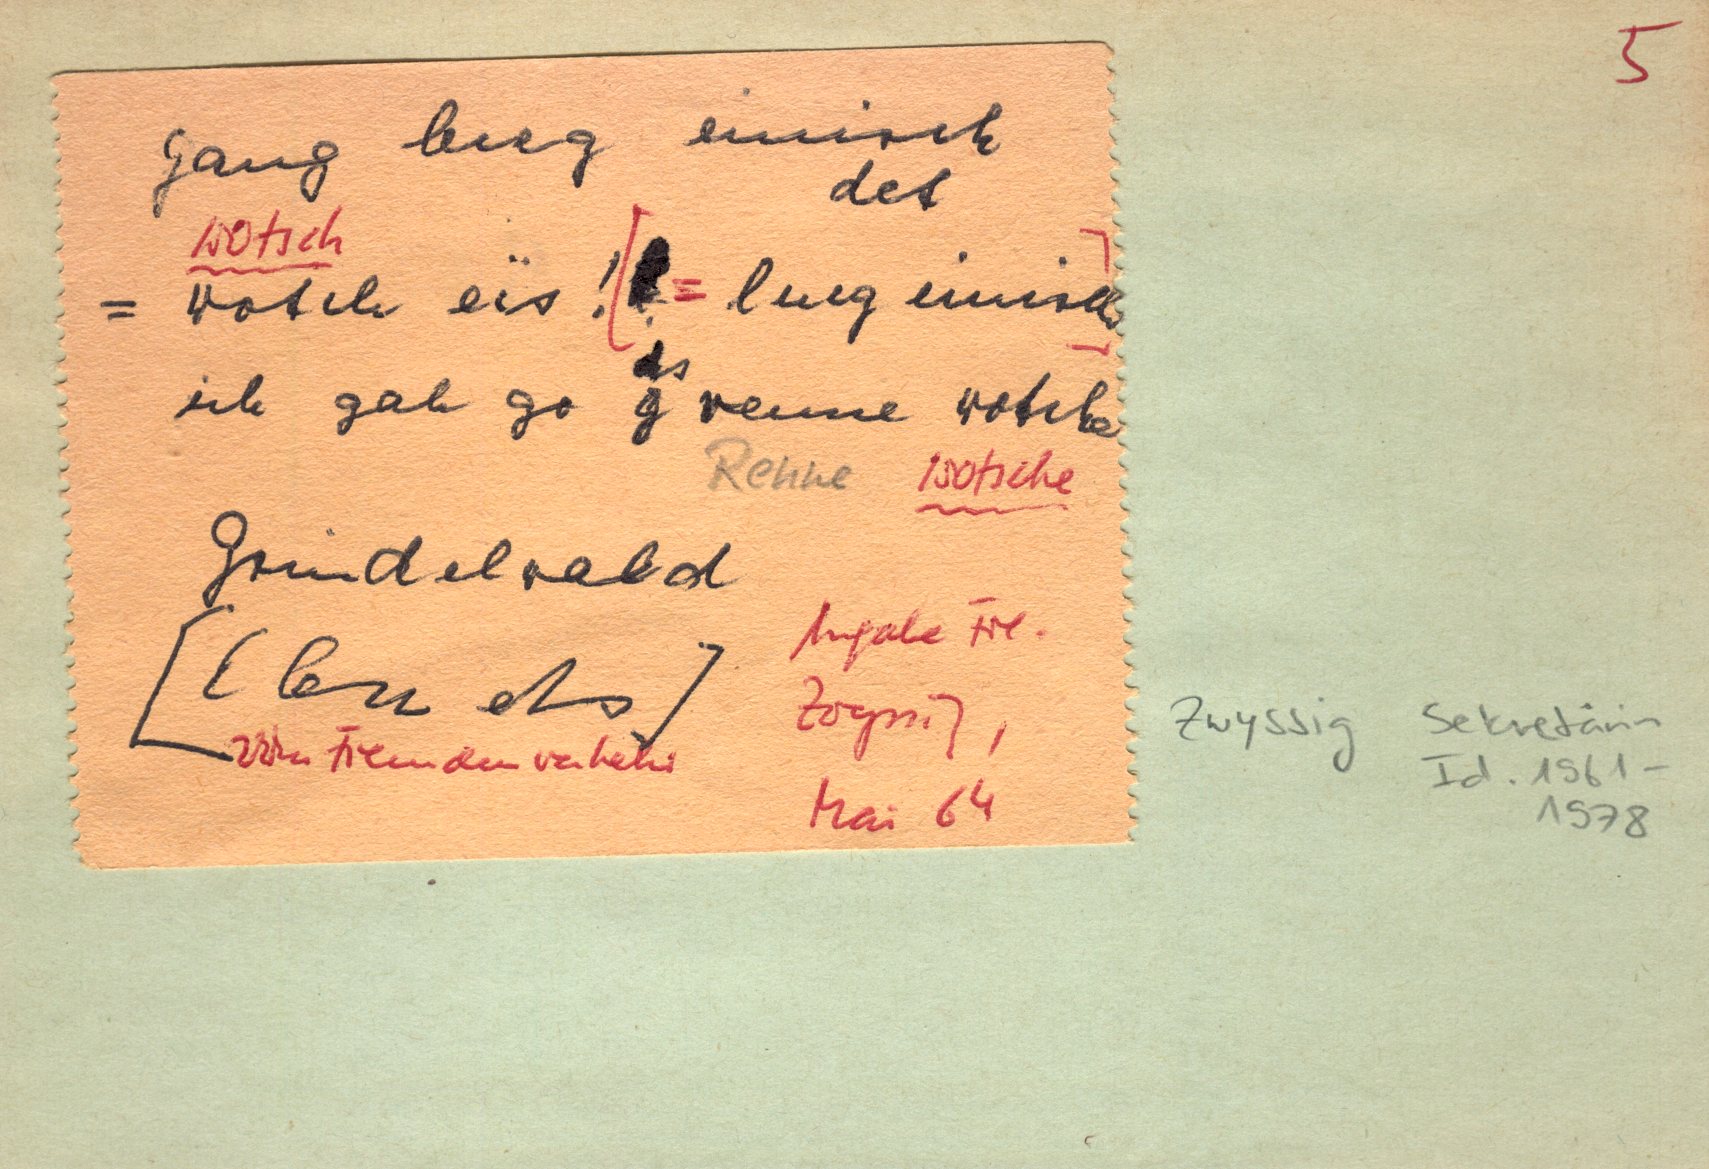 5
gang lueg einisch
det
wotsch
= wotsch eis! [ = lueg einisch]
ds
ich gah go g renne wotsche
Renne wotsche
Grindelwald
[ ]
vom Fremdenverkehr
Angabe Frl.
Zwyssig,
Mai 64
Zwyssig Sekretärin
Id. 1961-
1978